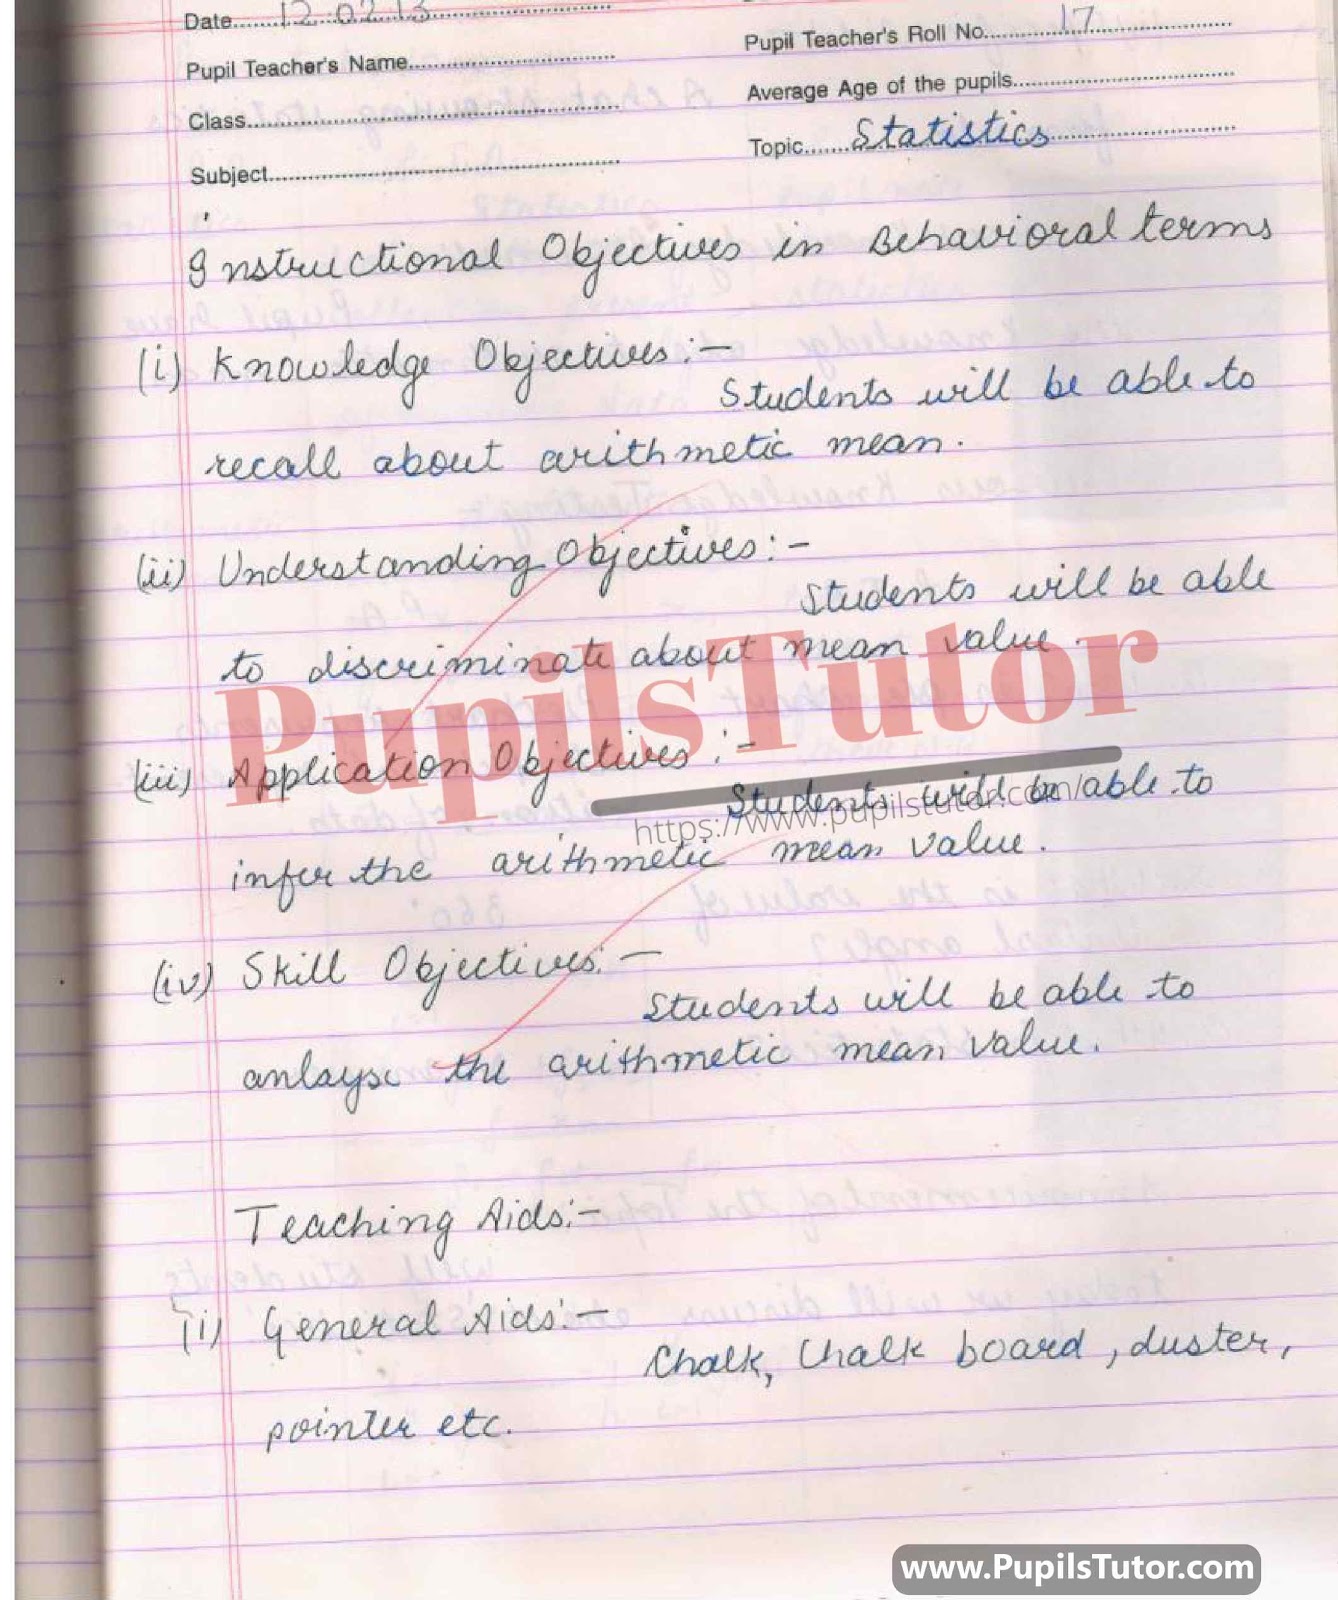 Date......12.02.13......
Pupil Teacher's Name......
Class......
Subject......
Pupil Teacher's Roll No......17......
Average Age of the pupils......
Topic......Statistics......
Instructional Objectives in Behavioral terms
(i) Knowledge Objectives:-
Students will be able to
recall about arithmetic mean.
(ii) Understanding Objectives:-
Students will be able
to discriminate about mean value.
PupilsTutor
(iii) Application Objectives:-
Students will be able to
https://www.pupilstutor.com/
infer the arithmetic mean value.
(iv) Skill Objectives:-
Students will be able to
anlayse the arithmetic mean value.
Teaching Aids:-
(i) General Aids:-
Chalk, Chalk board, duster,
pointer etc.
www.PupilsTutor.com